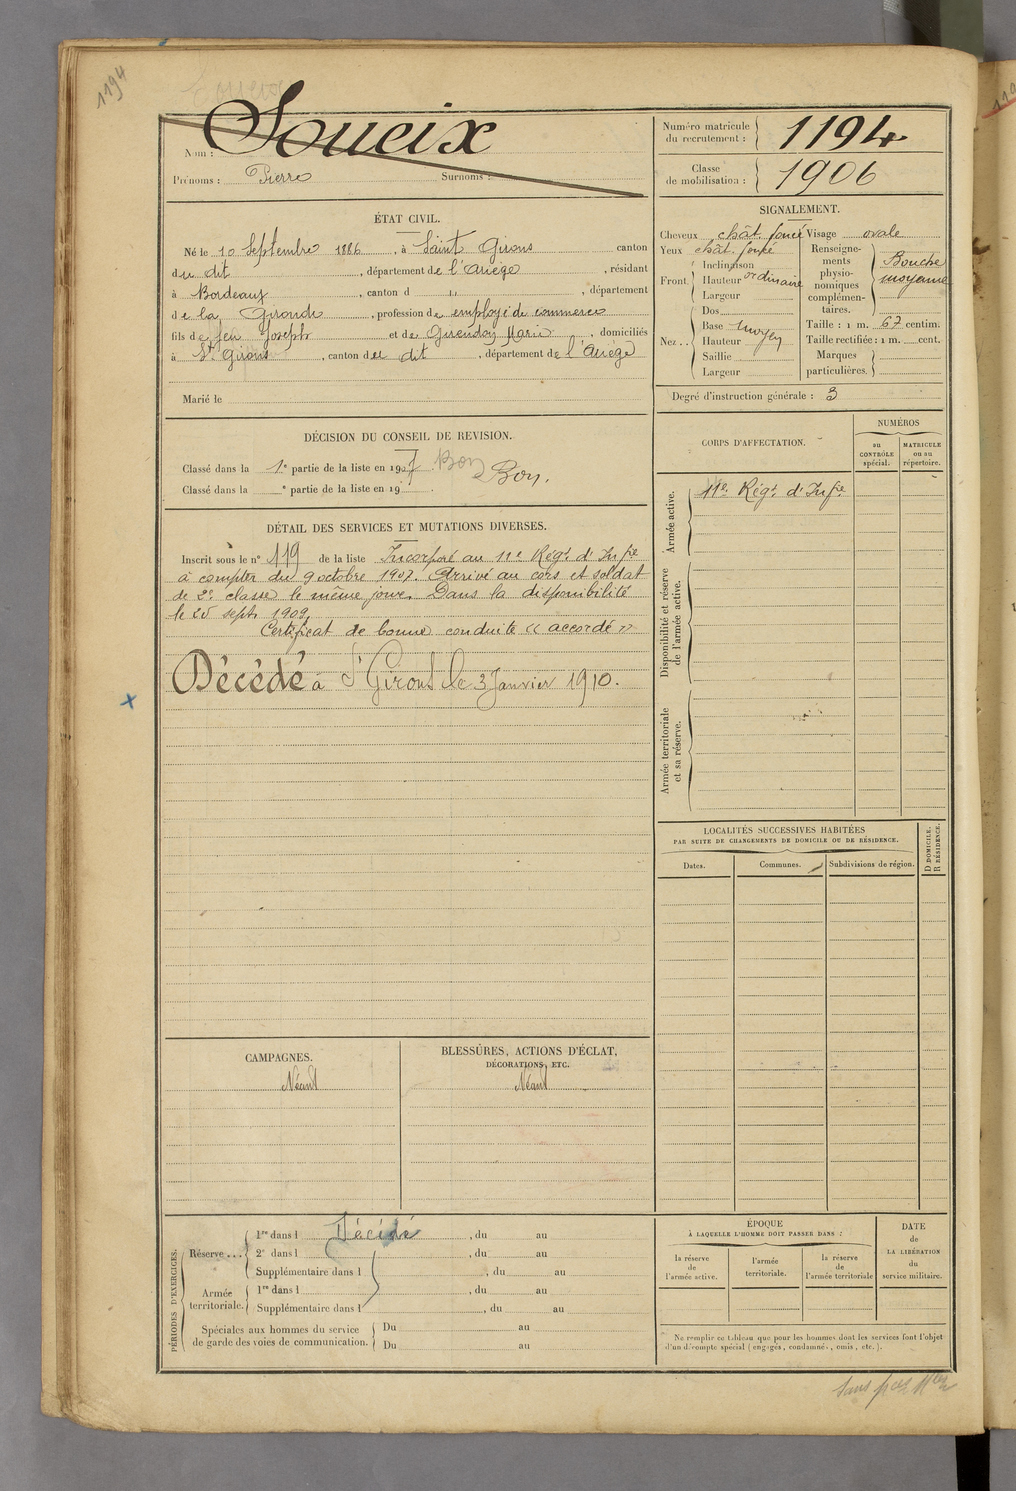 1194
Nom : Soueix
Prénoms : Pierre Surnoms :
Numéro matricule du recrutement : 1194
Classe de mobilisation : 1906
ÉTAT CIVIL.
Né le 10 Septembre 1886, à Saint Girons canton
du dit, département de l'Ariège, résidant
à Bordeaux, canton d ", département
de la Gironde, profession de employé de commerce
fils de feu Joseph et de Marie, domiciliés
à St Girons, canton du dit, département de l'Ariège
Marié le
SIGNALEMENT.
Cheveux chât. foncé Visage ovale
Yeux chât. foncé
Front Inclinaison
Hauteur ordinaire
Largeur
Nez .. Dos
Base moyen
Hauteur
Saillie
Largeur
Renseignements physionomiques complémentaires. Bouche moyenne
Taille : 1 m. 67 centim.
Taille rectifiée : 1 m. cent.
Marques particulières.
Degré d'instruction générale : 3
DÉCISION DU CONSEIL DE REVISION.
Classé dans la 1e partie de la liste en 1907 Bon Bon.
Classé dans la e partie de la liste en 19
CORPS D'AFFECTATION.
NUMÉROS
au CONTRÔLE spécial.
MATRICULE ou au répertoire.
Armée active.
11e Régt d'Infie
Disponibilité et réserve de l'armée active.
Armée territoriale et sa réserve.
DÉTAIL DES SERVICES ET MUTATIONS DIVERSES.
Inscrit sous le n° 119 de la liste Incorporé au 11e Régt d'Infie
à compter du 9 octobre 1907. Arrivé au corps et soldat
de 2e classe le même jour. Dans la disponibilité
le 25 septe 1909.
Certificat de bonne conduite « accordé »
Décédé à St Girons le 3 Janvier 1910.
LOCALITÉS SUCCESSIVES HABITÉES
PAR SUITE DE CHANGEMENTS DE DOMICILE OU DE RÉSIDENCE.
Dates.
Communes.
Subdivisions de région.
D DOMICILE.
R RÉSIDENCE.
CAMPAGNES.
Néant
BLESSURES, ACTIONS D'ÉCLAT,
DÉCORATIONS, ETC.
Néant
PÉRIODES D'EXERCICES.
Réserve ... 1re dans l Décédé, du au
2e dans l, du au
Supplémentaire dans l, du au
Armée territoriale. 1re dans l, du au
Supplémentaire dans l, du au
Spéciales aux hommes du service de garde des voies de communication.
Du au
Du au
ÉPOQUE
À LAQUELLE L'HOMME DOIT PASSER DANS :
la réserve de l'armée active.
l'armée territoriale.
la réserve de l'armée territoriale
DATE
de
LA LIBÉRATION
du
service militaire.
Ne remplir ce tableau que pour les hommes dont les services font l'objet
d'un décompte spécial (engagés, condamnés, omis, etc.).